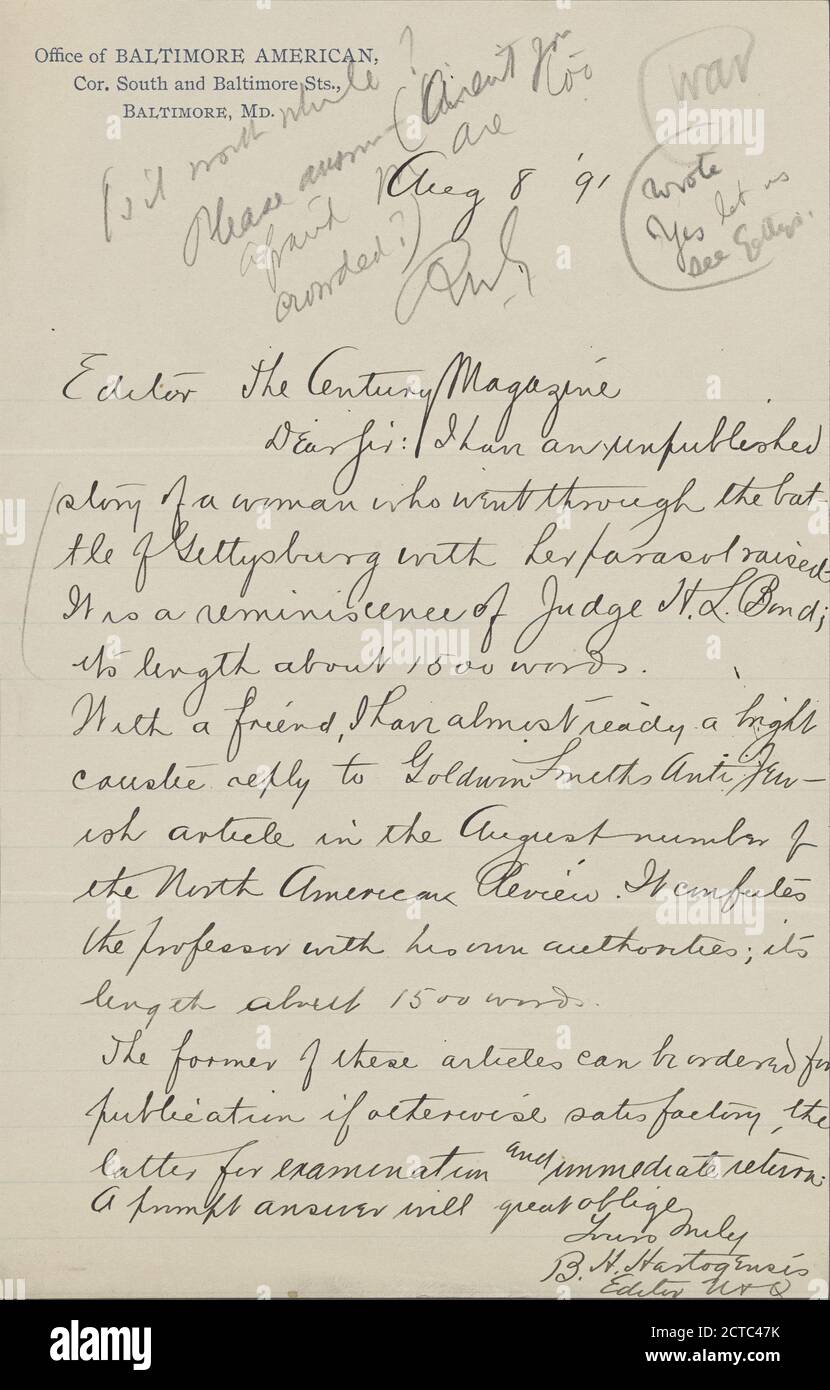 Office of BALTIMORE AMERICAN,
Cor. South and Baltimore Sts.,
BALTIMORE, MD.
Is it worth while?
Please answer (Aren't you
afraid we are too
crowded?)
war
wrote
Yes let us
see Gettys.
Aug 8 '91
Editor The Century Magazine
Dear Sir: I have an unpublished
story of a woman who went through the bat-
tle of Gettysburg with her parasol raised.
It is a reminiscence of Judge H. L. Bond;
its length about 1500 words.
With a friend, I have almost ready a bright
caustic reply to Goldwin Smiths Anti Jew-
ish article in the August number of
the North American Review. It confutes
the professor with his own authorities; its
length about 1500 words.
The former of these articles can be ordered for
publication if otherwise satisfactory, the
latter for examination and immediate return.
A prompt answer will great oblige
Yours truly
B. H. Hartogensis
Editor N & Q
alamy
Image ID: 2CTC47K
www.alamy.com